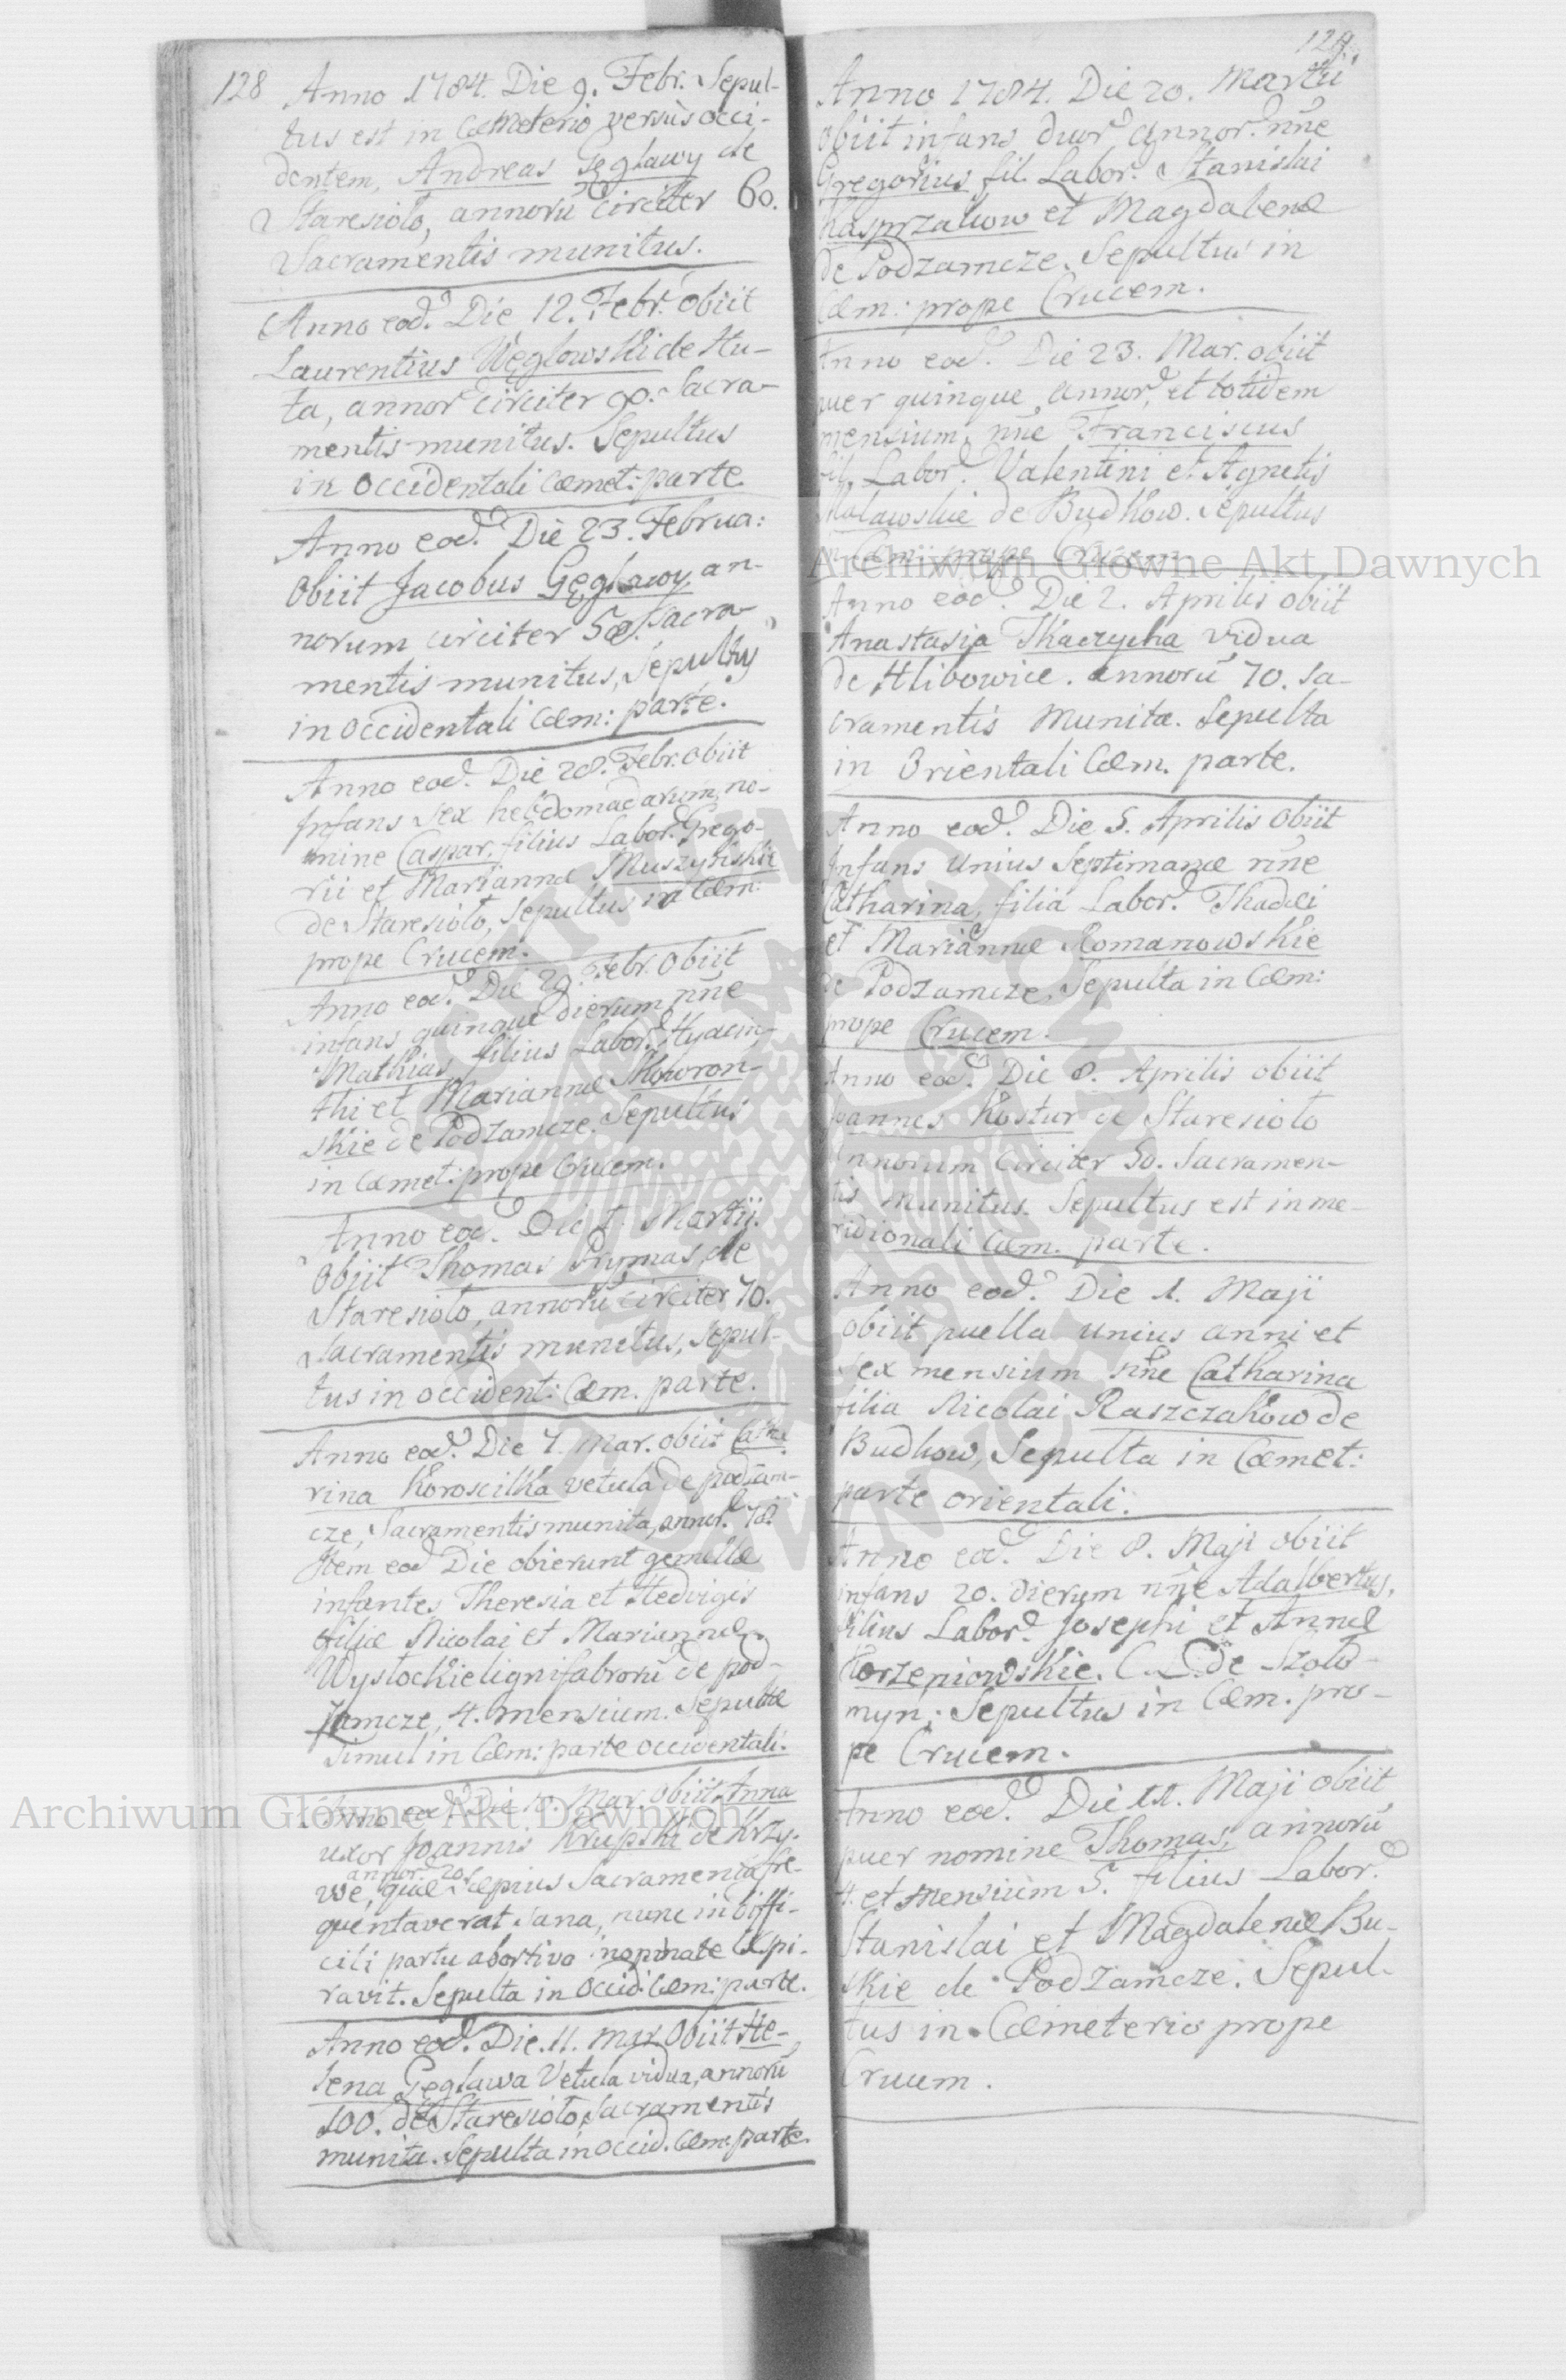 128
Anno 1784. Die 9. Febr. Sepul-
tus est in Cœmeterio versus occi-
dentem, Andreas Gęgławy de
Staresioło, annorū circiter 60.
Sacramentis munitus.
Anno eod. Die 12. Febr. obiit
Laurentius Węglowski de Hu-
ta, annor circiter 90. Sacra-
mentis munitus. Sepultus
in Occidentali Cœmet: parte.
Anno eod. Die 23. Februa:
Obiit Jacobus Gęgławy an-
norum circiter Sacra-
mentis munitus, Sepultus
in Occidentali Cœm: parte.
Anno eod. Die 28. Febr. obiit
Infans Sex hebdomadarum, no-
mine Caspar, filius Labor. Grego-
rii et Mariannæ Muszyńskie
de Staresioło, Sepultus in Cœm:
prope Crucem.
Anno eod. Die 29. Febr. Obiit
infans quinque dierum nñe
Mathias filius Labor. Hyacin-
thi et Mariannæ Skowron-
skie de Podzamcze. Sepultus
in Cœmet: prope Crucem.
Anno eod. Die 1. Martij.
Obiit Thomas Prymas, de
Staresioło, annorū circiter 70.
Sacramentis munitus, Sepul-
tus in occident: Cœm. parte.
Anno eod. Die 7. Mar. obiit Catha
rina Koroscilka vetula de podzam-
cze, Sacramentis munita, annor. 78.
Item eod Die obierunt gemellæ
infantes Theresia et Hedvigis
filiæ Nicolai et Mariannæ
Wysłockie lignifabrorū de pod-
zamcze, 4. mensium. Sepultæ
Simul in Cœm: parte occidentali.
Anno eod. Die 10. Mar. obiit Anna
uxor Joannis Krupski de Krzy-
annor. 20.
we, quæ sæpius Sacramenta fre-
quentaverat sana, nunc in diffi-
cili partu abortivo inopinate Exspi-
ravit. Sepulta in Occid: Cœm: parte.
Anno eod. Die. 11. Mar. Obiit He-
lena Gęgława Vetula vidua, annorū
100. de Staresioło, Sacramentis
munita. Sepulta in occid. Cœm: parte.
129.
Anno 1784. Die 20. Martii
Obiit infans duor annor. nñe
Gregorius fil. Labor. Stanislai
Kasprzakow et Magdalenæ
de Podzamcze. Sepultus in
Cœm: prope Crucem.
Anno eod. Die 23. Mar. obiit
puer quinque annor, et totidem
mensium, nñe Franciscus
fil. Labor. Valentini et Agnetis
Malawskie de Budkow. Sepultus
in Cœm: prope Crucem.
Anno eod. Die 2. Aprilis obiit
Anastasia Tkaczycha vidua
de Hlibowice. annorū 70. Sa-
cramentis Munita. Sepulta
in Orientali Cœm. parte.
Anno eod. Die 5. Aprilis obiit
Infans Unius Septimanæ nñe
Catharina, filia Labor. Thadei
et Mariannæ Romanowskie
de Podzamcze. Sepulta in Cœm:
prope Crucem.
Anno eod. Die 8. Aprilis obiit
Joannes Kostur de Staresioło
Annorum circiter 50. Sacramen-
tis munitus. Sepultus est in me-
ridionali Cœm. parte.
Anno eod. Die 1. Maji
obiit puella unius anni et
Sex mensium nñe Catharina
filia Nicolai Raszczakow de
Budkow, Sepulta in Cœmet:
parte orientali.
Anno eod. Die 8. Maji obiit
infans 20. dierum nñe Adalbertus,
filius Labor. Josephi et Annæ
Korzeniowskie. C. L. de Szoło-
myn; Sepultus in Cœm. pro-
pe Crucem.
Anno eod. Die 11. Maji obiit
puer nomine Thomas, annorū
4. et mensium 5. filius Labor.
Stanislai et Magdalenæ Bu-
skie de Podzamcze. Sepul-
tus in Cœmeterio prope
Crucem.
Archiwum Główne Akt Dawnych
Archiwum Główne Akt Dawnych